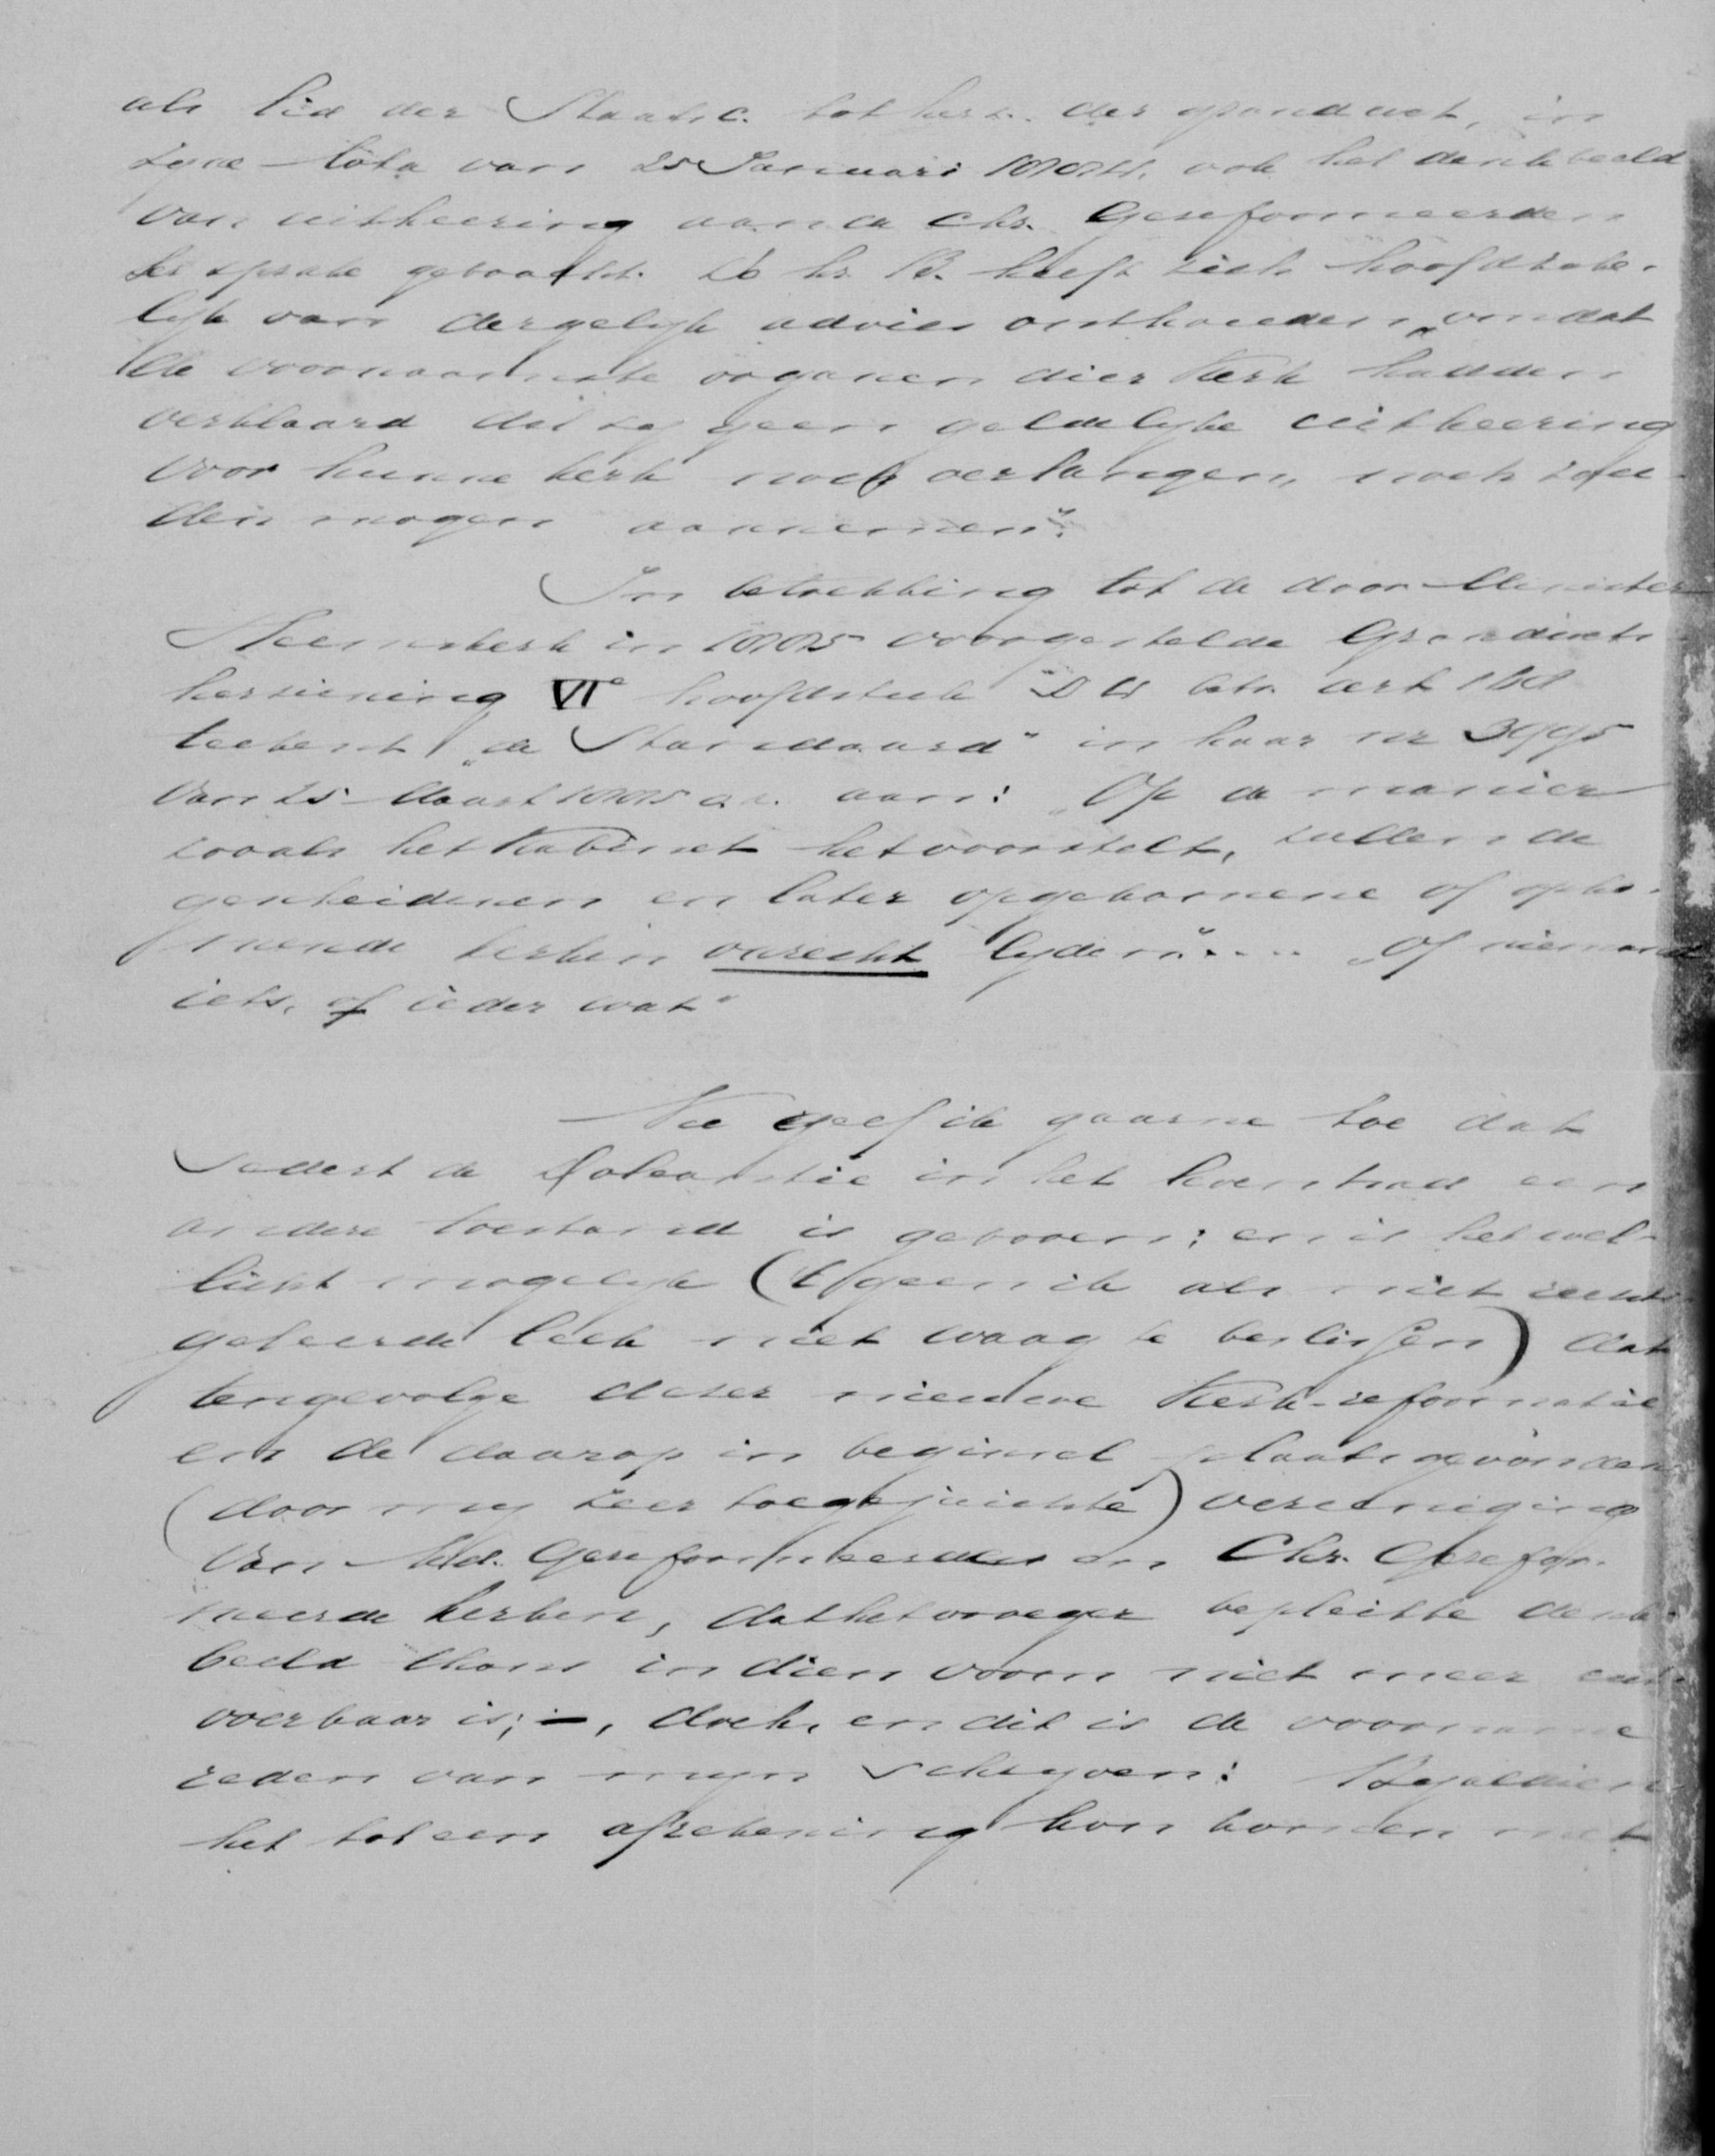 als lid der Staatsc. tot herz. der grondwet, in
zyne Nota van 25 Januari 1884, ook het denkbeeld
van uitkeering aan de Chr. Gereformeerden
ter sprake gebracht. De hr. B. heeft zich hoofdzake-
lyk van dergelyk advies onthouden „omdat
de voornaamste organen dier Kerk hadden
verklaard dat zy geen geldelyke uitkeering
voor hunne kerk noch verlangen, noch zou-
den mogen aannemen".
In betrekking tot de door Minister
Heemskerk in 1885 voorgestelde Grondwets
herziening VIe hoofdstuk art 168
teekent „de Standaard" in haar nr 3995
van 25 Maart 1885 o.a. aan: „Op de manier
zooals het Kabinet het voorstelt, zullen de
gescheidenen en later opgekomene of opko-
mende kerken onrecht lyden".... „Of niemand
iets, of ieder wat"
Nu geef ik gaarne toe dat
sedert de Doleantie in het leven trad een
andere toestand is geboren; en is het wel-
licht mogelyk (tgeen ik als niet rechts
geleerde leek niet waag te beslissen) dat
tengevolge dezer nieuwe Kerk-reformatie
en de daarop in beginsel plaats gevonden
(door my zeer toegejuichte) vereeniging
van Ned. Gereformeerden en Chr. Gerefor-
meerde kerken, dat het vroeger bepleitte denk-
beeld thans in dien vorm niet meer uit-
voerbaar is; –, doch, en dit is de voorname
reden van myn schryven: Byaldien
het tot een afrekening kon komen met